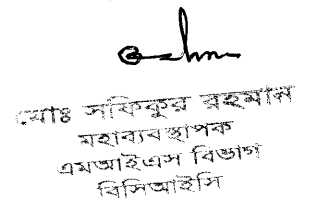 মোঃ সফিকুর রহমান
মহাব্যবস্থাপক
এমআইএস বিভাগ
বিসিআইসি